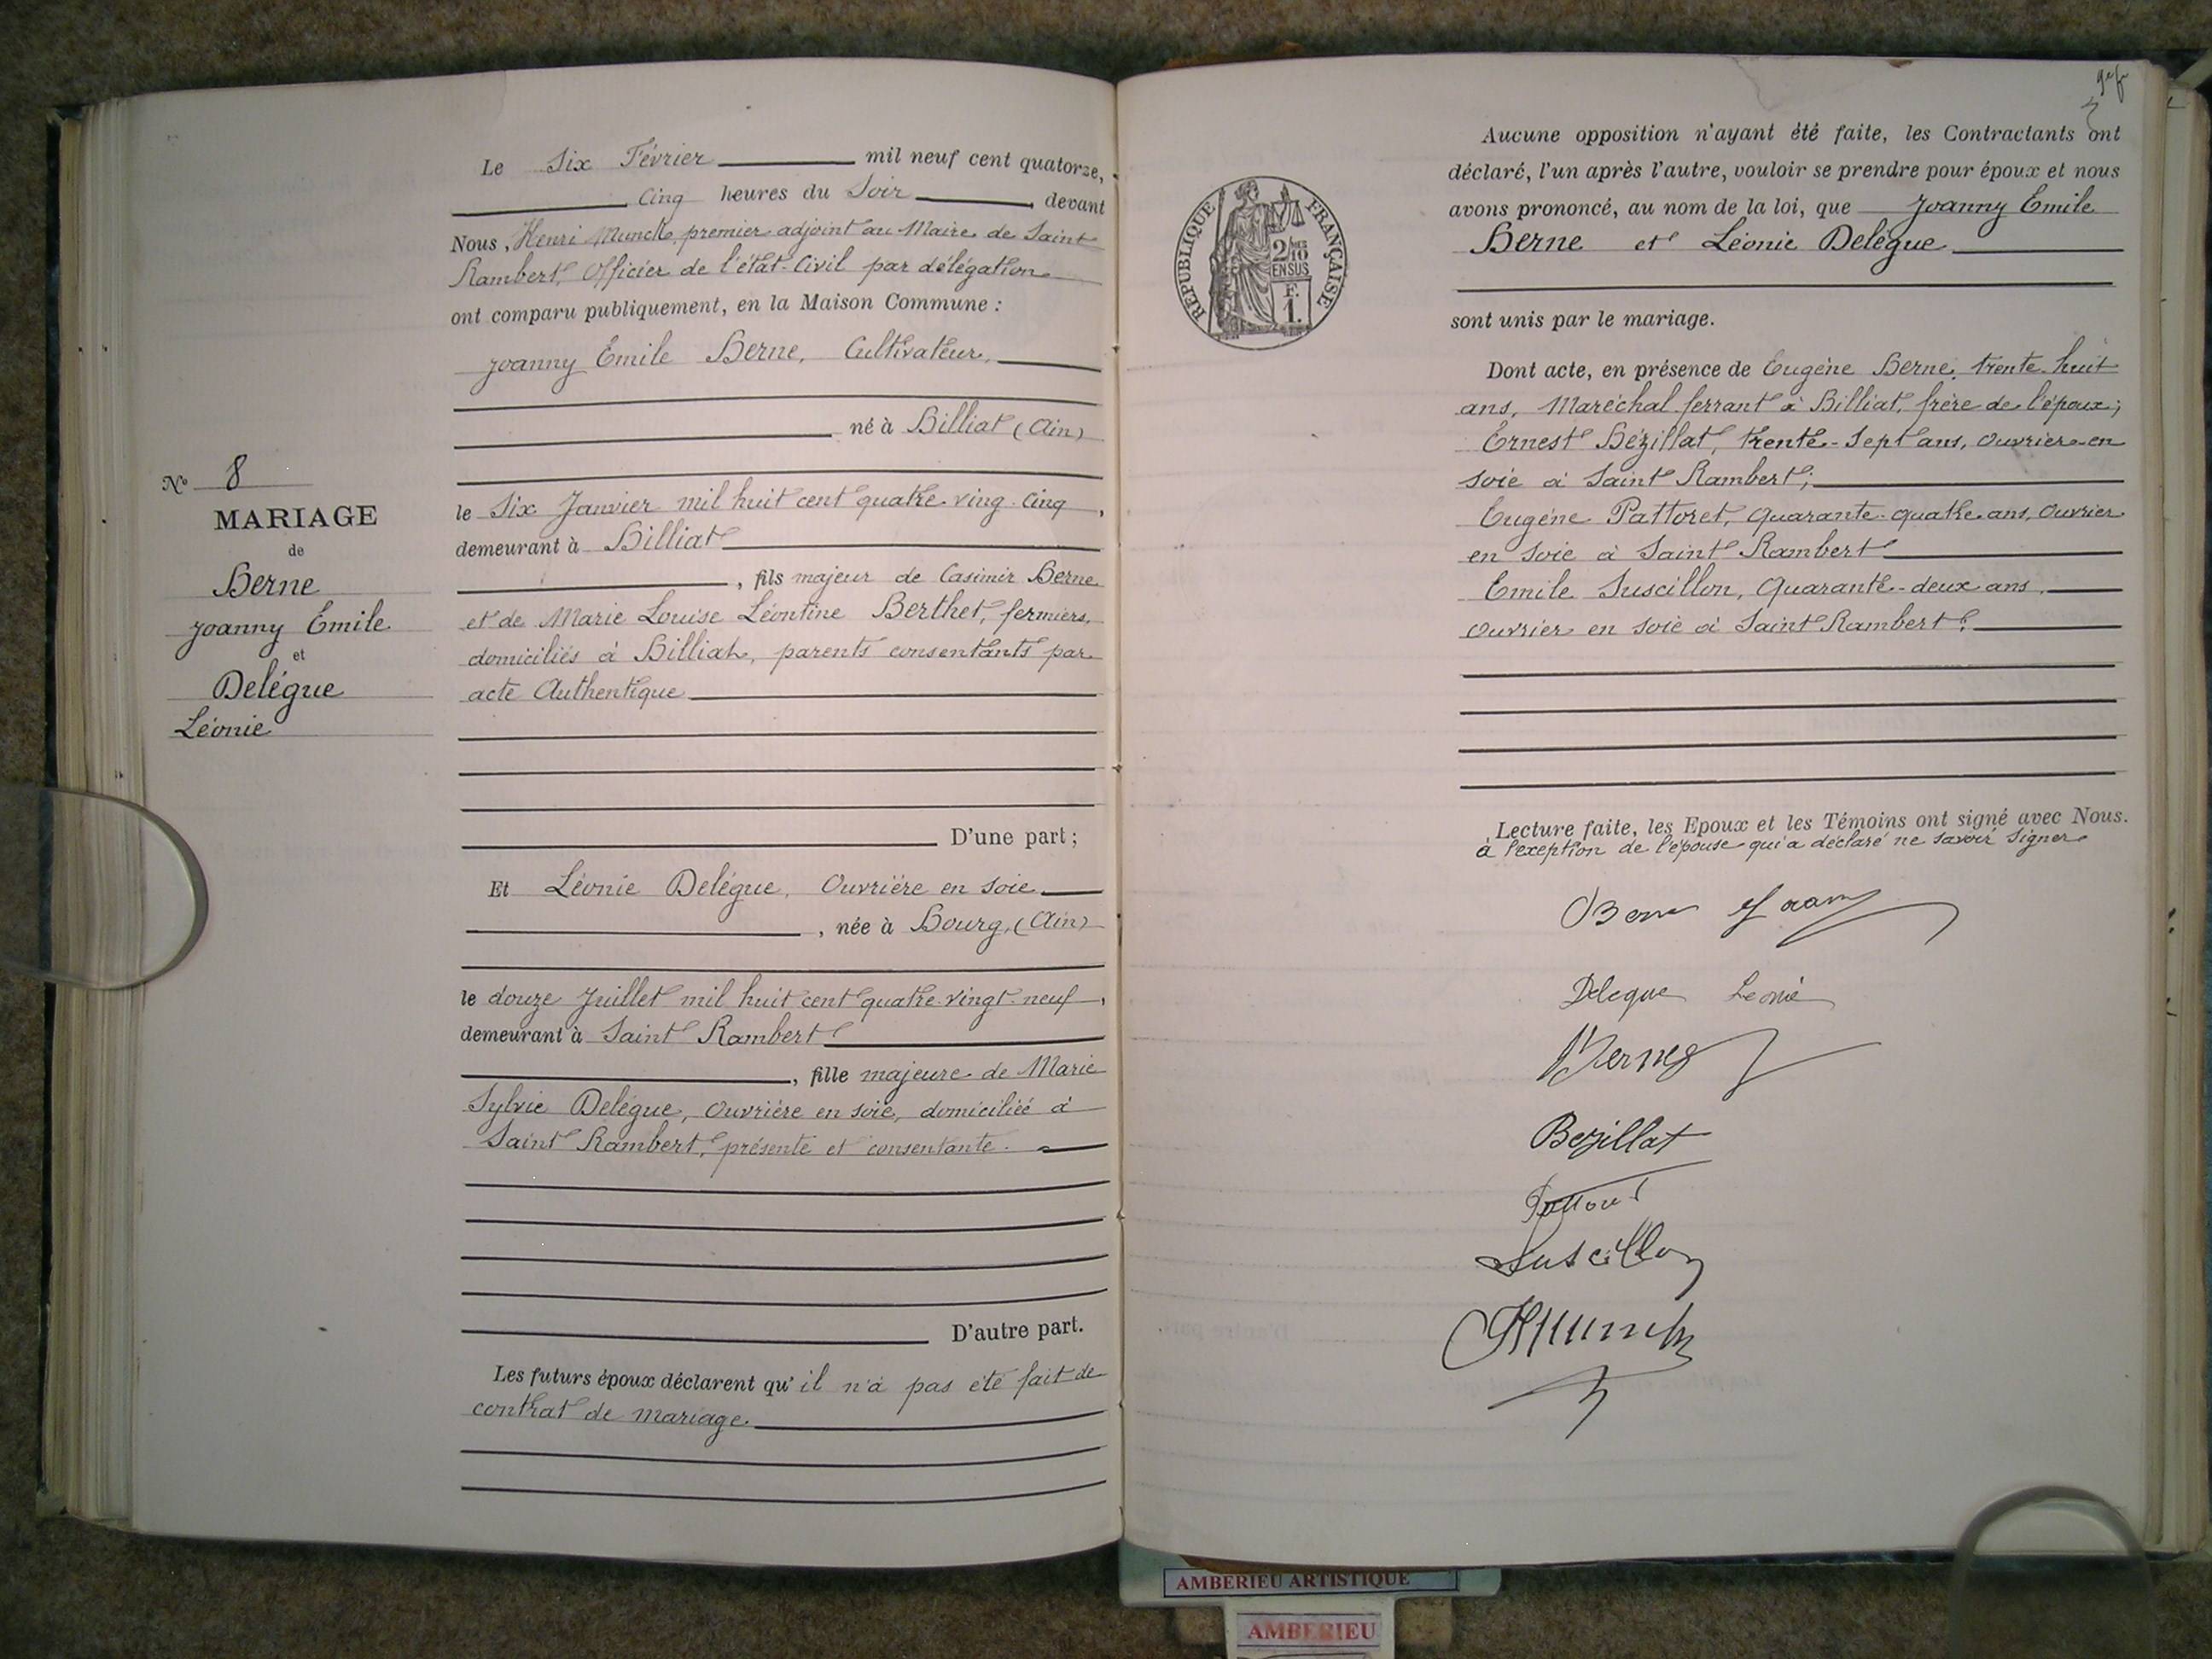 N° 8
MARIAGE
de
Berne
Joanny Emile
et
Delégue
Léonie
Le Six Février mil neuf cent quatorze,
Cinq heures du Soir, devant
Nous, Henri Munck, premier adjoint au Maire de Saint
Rambert, Officier de l'état-Civil par délégation
ont comparu publiquement, en la Maison Commune :
Joanny Emile Berne, Cultivateur,
né à Billiat (Ain)
le Six Janvier mil huit cent quatre ving-cinq,
demeurant à Billiat
, fils majeur de Casimir Berne
et de Marie Louise Léontine Berthet, fermiers,
domiciliés à Billiat, parents consentants par
acte Authentique
D'une part ;
Et Léonie Delégue, Ouvrière en soie
, née à Bourg, (Ain)
le douze Juillet mil huit cent quatre-vingt-neuf,
demeurant à Saint Rambert
, fille majeure de Marie
Sylvie Delégue, Ouvrière en soie, domiciliée à
Saint Rambert, présente et consentante.
D'autre part.
Les futurs époux déclarent qu'il n'a pas été fait de
contrat de mariage.
RÉPUBLIQUE FRANÇAISE
2/10
EN SUS
F.
1.
Aucune opposition n'ayant été faite, les Contractants ont
déclaré, l'un après l'autre, vouloir se prendre pour époux et nous
avons prononcé, au nom de la loi, que Joanny Emile
Berne et Léonie Delégue
sont unis par le mariage.
Dont acte, en présence de Eugène Berne, trente-huit
ans, Maréchal ferrant à Billiat, frère de l'époux ;
Ernest Bézillat, trente-sept ans, ouvrier en
soie à Saint Rambert ;
Eugène Pattoret, quarante-quatre ans, ouvrier
en soie à Saint Rambert
Emile Suscillon, Quarante-deux ans,
ouvrier en soie à Saint Rambert.
Lecture faite, les Epoux et les Témoins ont signé avec Nous.
à l'exeption de l'épouse qui a déclaré ne savoir signer
Berne Joanny
Delegue Leonie
Berne
Bezillat
Suscillon
HMunck
AMBERIEU ARTISTIQUE
AMBERIEU